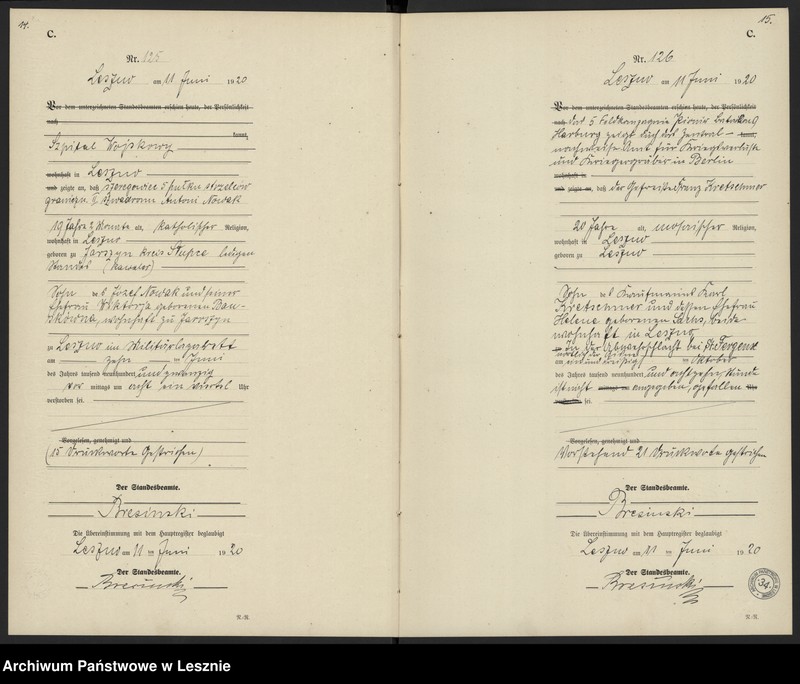 14.
C.
Nr. 125
Leszno am 11 Juni 1920
Vor dem unterzeichneten Standesbeamten erschien heute, der Persönlichkeit
nach
kannt,
Szpital Wojskowy
wohnhaft in Leszno
und zeigte an, daß szeregowiec 5 pułku strzelców
granicz. II szwadronu Antoni Nowak
19 Jahre 2 Monate alt, katholischer Religion,
wohnhaft in Leszno
geboren zu Jaroszyn Kreis Słupce ledigen
Standes (kawaler)
Sohn des Józef Nowak und seiner
Ehefrau Wiktorja geborenen
wohnhaft zu Jaroszyn
zu Leszno im Militärlazarett
am zehn ten Juni
des Jahres tausend neunhundert und zwanzig
vor mittags um acht ein viertel Uhr
verstorben sei.
Vorgelesen, genehmigt und
(15 Druckworte Gestrichen)
Der Standesbeamte.
Bresinski
Die Übereinstimmung mit dem Hauptregister beglaubigt
Leszno am 11 ten Juni 1920
Der Standesbeamte.
Bresinski
N.-R.
15.
C.
Nr. 126
Leszno am 11 Juni 1920
Vor dem unterzeichneten Standesbeamten erschien heute, der Persönlichkeit
nach das 5 Feldkompagnie Pionir Bataillon 9
Harburg zeigt durch das Zentral-
nachweise Amt für Kriegsverluste
und Kriegergräber in Berlin
wohnhaft in
und zeigte an, daß der Gefreite Franz Kretschmer
20 Jahre alt, mosaischer Religion,
wohnhaft in Leszno
geboren zu Leszno
Sohn des Kaufmanns Karl
Kretschmer und dessen Ehefrau
Helene geborenen Sachs, beide
wohnhaft in Leszno
in der Abwehrschlacht bei St. Fergeux
am ein und zwanzig ten Oktober
des Jahres tausend neunhundert und achtzehn, Stunde
ist nicht angegeben, gefallen
sei.
Vorgelesen, genehmigt und
Vorstehend 21 Druckworte gestrichen
Der Standesbeamte.
Bresinski
Die Übereinstimmung mit dem Hauptregister beglaubigt
Leszno am 11 ten Juni 1920
Der Standesbeamte.
Bresinski
34.
N.-R.
Archiwum Państwowe w Lesznie